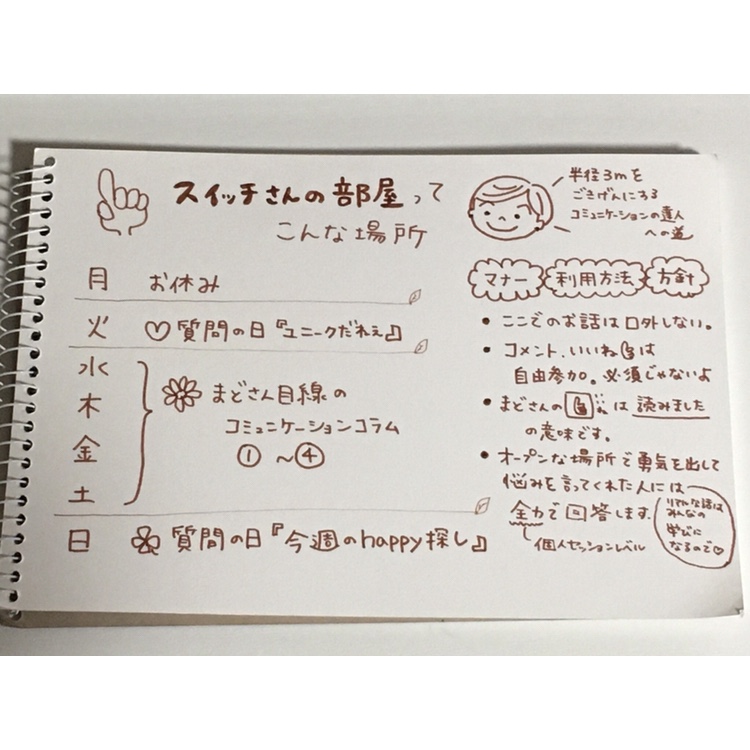 スイッチさんの部屋って
こんな場所
月 お休み
火 ♡質問の日『ユニークだれぇ』
水
木
金
土
まどさん目線の
コミュニケーションコラム
①~④
日 質問の日『今週のhappy探し』
半径3mを
ごきげんにする
コミュニケーションの達人
への道
マナー 利用方法 方針
• ここでのお話は口外しない。
• コメント、いいね は
自由参加。必須じゃないよ
• まどさんの は 読みました
の意味です。
• オープンな場所で勇気を出して
悩みを言ってくれた人には
全力で回答します。
個人セッションレベル
リアルな話は
みんなの
学びに
なるので♡